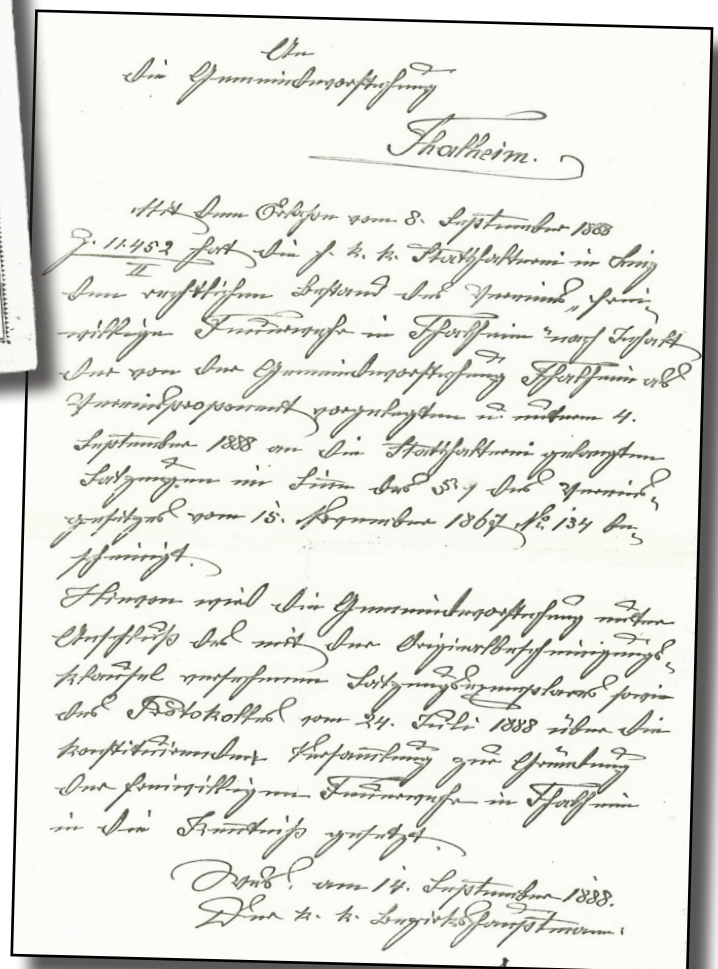 An
die Gemeindevorstehung
Thalheim.
Mit dem Erlaße vom 8. September 1888
Z. 11.452/II hat die h. k. k. Statthalterei in Linz
den rechtlichen Bestand des Vereines „frei-
willige Feuerwehr in Thalheim" nach Inhalt
der von der Gemeindevorstehung Thalheim als
Vereinsproponent vorgelegten u. unterm 4.
September 1888 an die Statthalterei gelangten
Satzungen im Sinne des § 9 des Vereins-
gesetzes vom 15. November 1867 No 134 be-
scheinigt.
Hievon wird die Gemeindevorstehung unter
Anschluß des mit der Originalbescheinigungs-
klausel versehenen Satzungsexemplares sowie
des Protokolles vom 24. Juli 1888 über die
konstituierende Versammlung zur Gründung
der freiwilligen Feuerwehr in Thalheim
in die Kenntniß gesetzt.
Wels, am 14. September 1888.
Der k. k. Bezirkshauptmann: